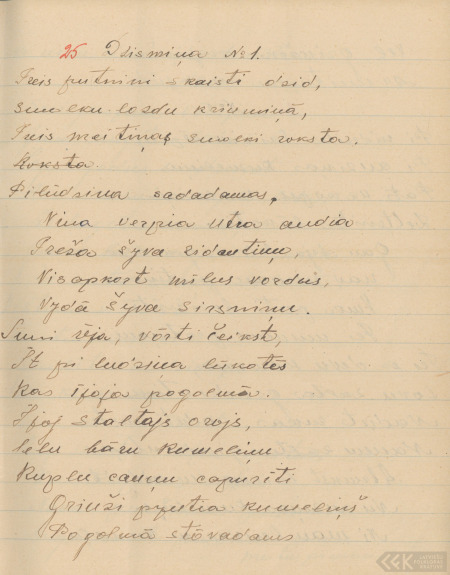 25 Dzismiņa № 1.
Treis putnini skaisti dzid,
smolku lozdu kriumiņā,
Treis meitiņas smolki roksta.
Roksta
Pilūdziņa sadadamas,
Vina verpia utra audia
Treša šyva zidautiņu,
Visapkort milus vordus,
Vydā šyva sirsniņu.
Suni rēja, vōrti čeikst,
It pi ludziņa lūkotēs
Kas ijoja pogolmā.
Ijoj staltajs orojs,
lelu bāru kumeliņu
Kuplu cauņu capuriti
Griuži pyntia kumeliņš
Pogolmā stōvadams